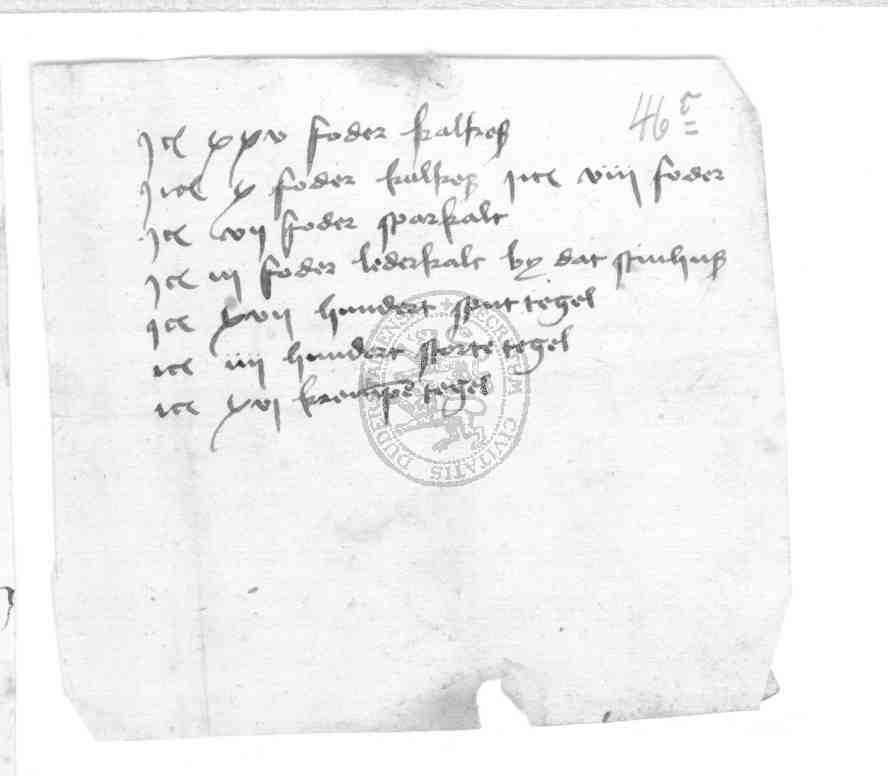 46 r
Jtem xxv foder kalkes
Jtem x foder kalkes Jtem viii foder
Jtem vij foder sparkalc
Jtem iij foder lederkalc by dat
Jtem xvij hundert tegel
item iiij hundert storte tegel
item xvj krempe tegel
SECRETUM CIVITATIS DUDERSTADIENSIS